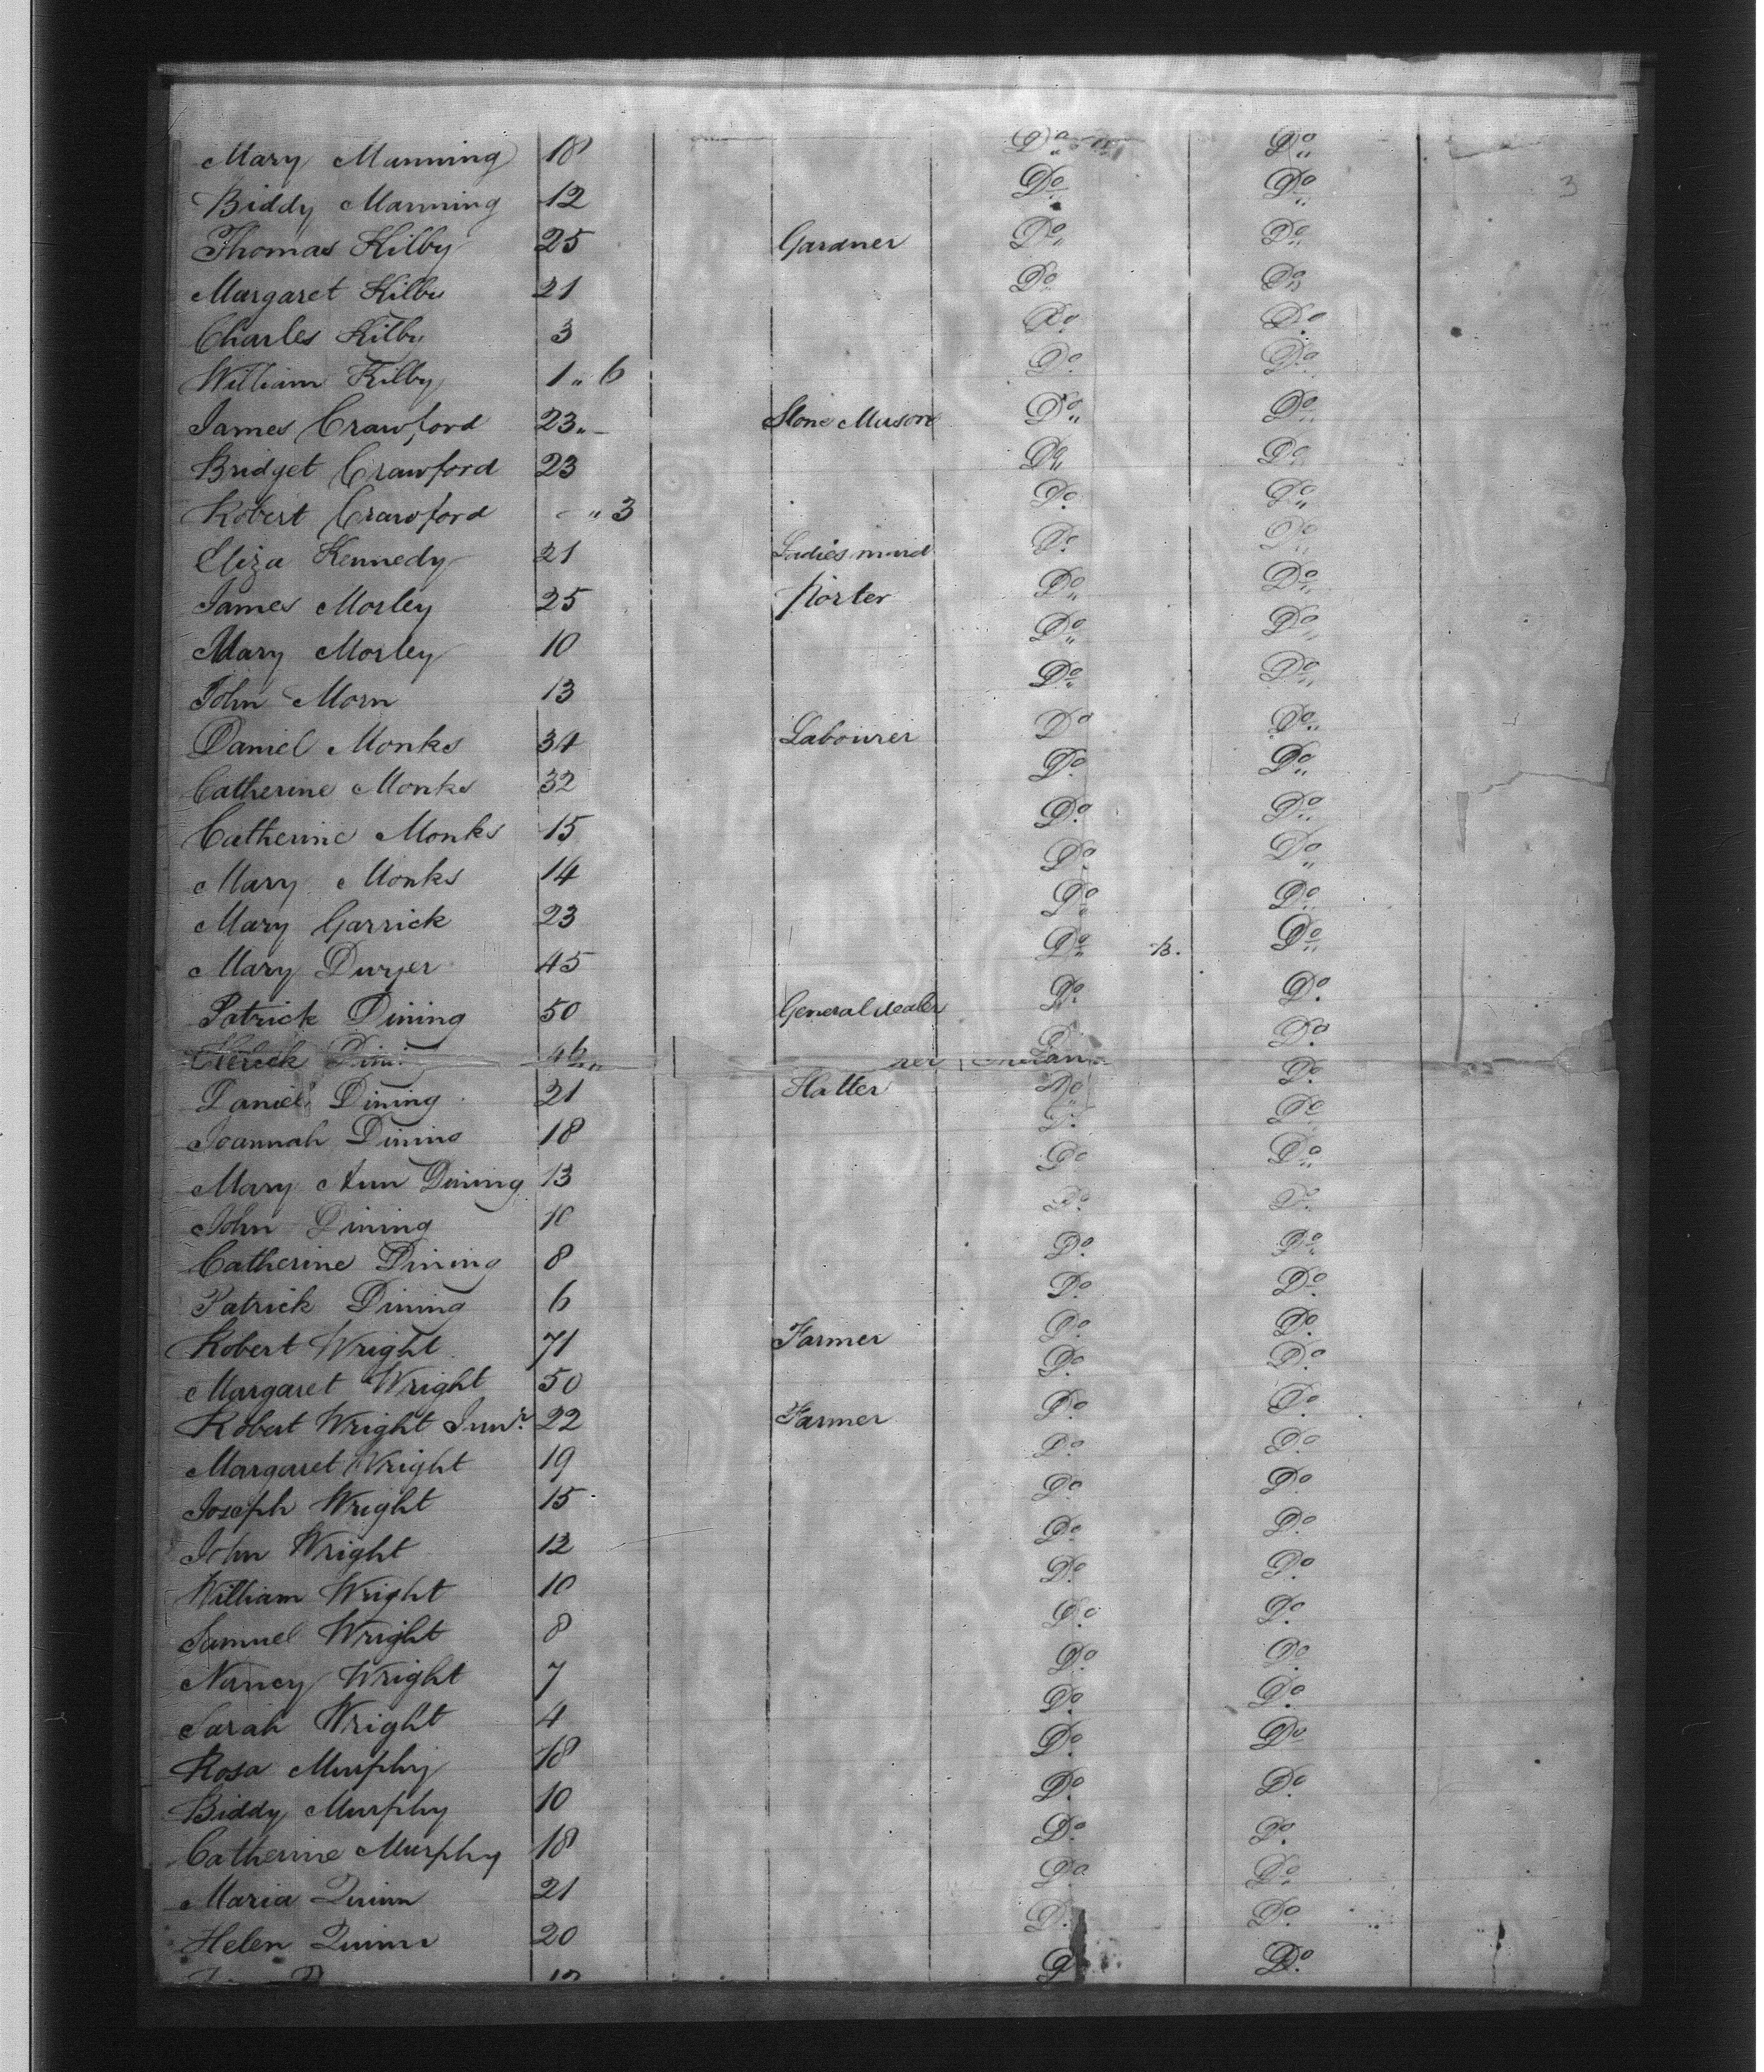 Mary Manning 18 Do Do
3
Biddy Manning 12 Do Do
Thomas Kilby 25 Gardner Do Do
Margaret Kilby 21 Do Do
Charles Kilby 3 Do Do
William Kilby 1 „ 6 Do Do
James Crawford 23 „ – Stone Mason Do Do
Bridget Crawford 23 Do Do
Robert Crawford – „ 3 Do Do
Eliza Kennedy 21 Ladies maid Do Do
James Morley 25 Porter Do Do
Mary Morley 10 Do Do
John Morn 13 Do Do
Daniel Monks 34 Labourer Do Do
Catherine Monks 32 Do Do
Catherine Monks 15 Do Do
Mary Monks 14 Do Do
Mary Garrick 23 Do Do
Mary Dwyer 45 Do B. Do
Patrick Dining 50 General dealer Do Do
46 Do
Daniel Dining 21 Hatter Do Do
Joannah Dining 18 Do Do
Mary Ann Dining 13 Do Do
John Dining 10 Do Do
Catherine Dining 8 Do Do
Patrick Dining 6 Do Do
Robert Wright 71 Farmer Do Do
Margaret Wright 50 Do Do
Robert Wright Junr. 22 Farmer Do Do
Margaret Wright 19 Do Do
Joseph Wright 15 Do Do
John Wright 12 Do Do
William Wright 10 Do Do
Samuel Wright 8 Do Do
Nancy Wright 7 Do Do
Sarah Wright 4 Do Do
Rosa Murphy 18 Do Do
Biddy Murphy 10 Do Do
Catherine Murphy 18 Do Do
Maria Quinn 21 Do Do
Helen Quinn 20 Do Do
Do